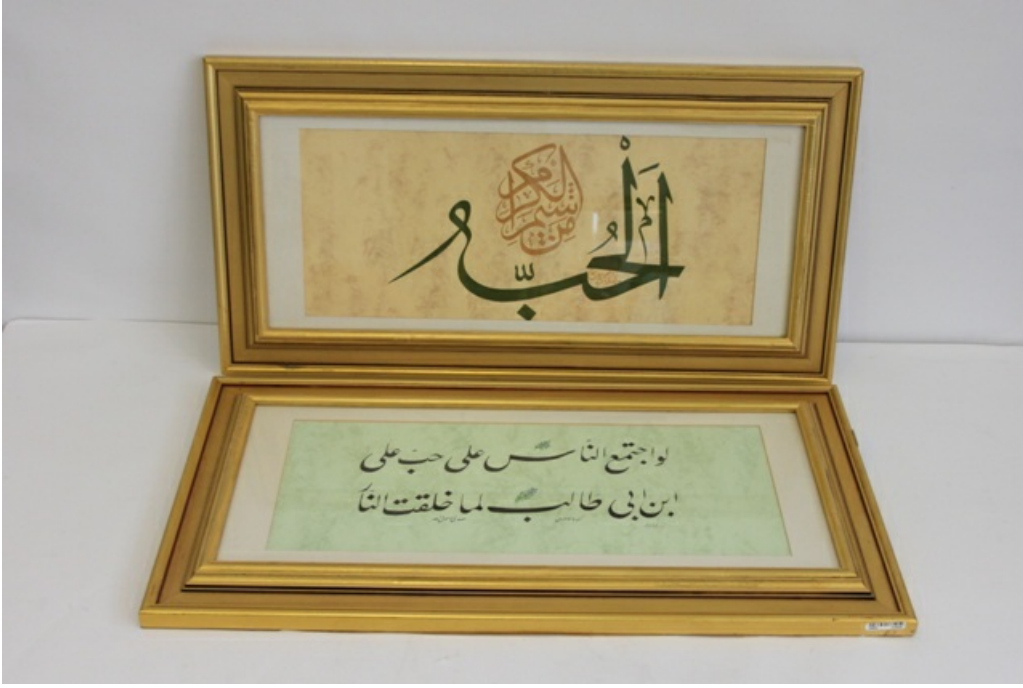 الحُبّ
من شيم الكرام
لو اجتمع الناس على حبّ على
ابن ابی طالب لما خلقت النار